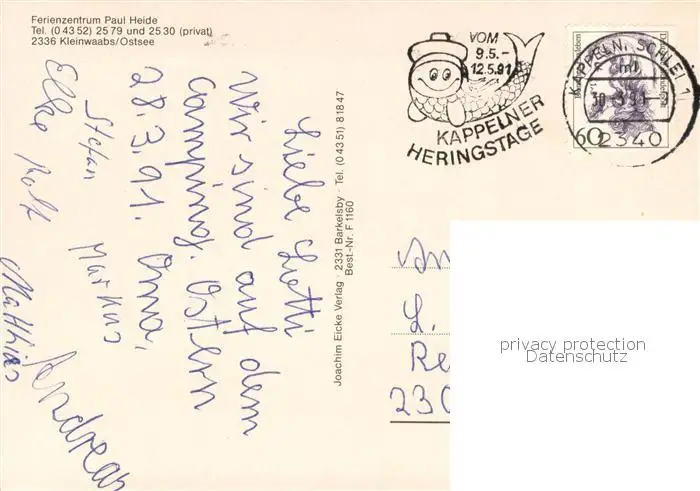 Ferienzentrum Paul Heide
Tel. (0 43 52) 25 79 und 25 30 (privat)
2336 Kleinwaabs/Ostsee
Liebe Lotti
Wir sind auf dem
Camping. Ostern
28.3.91. Oma,
Stefan Markus
Elke Rolf
Matthias
Andreas
Joachim Eicke Verlag · 2331 Barkelsby · Tel. (0 43 51) 8 18 47
Best.-Nr. F 1160
VOM
9.5.-
12.5.91
KAPPELNER
HERINGSTAGE
KAPPELN, SCHLEI 1
ml
2340
60
An
L.
Re
230
privacy protection
Datenschutz